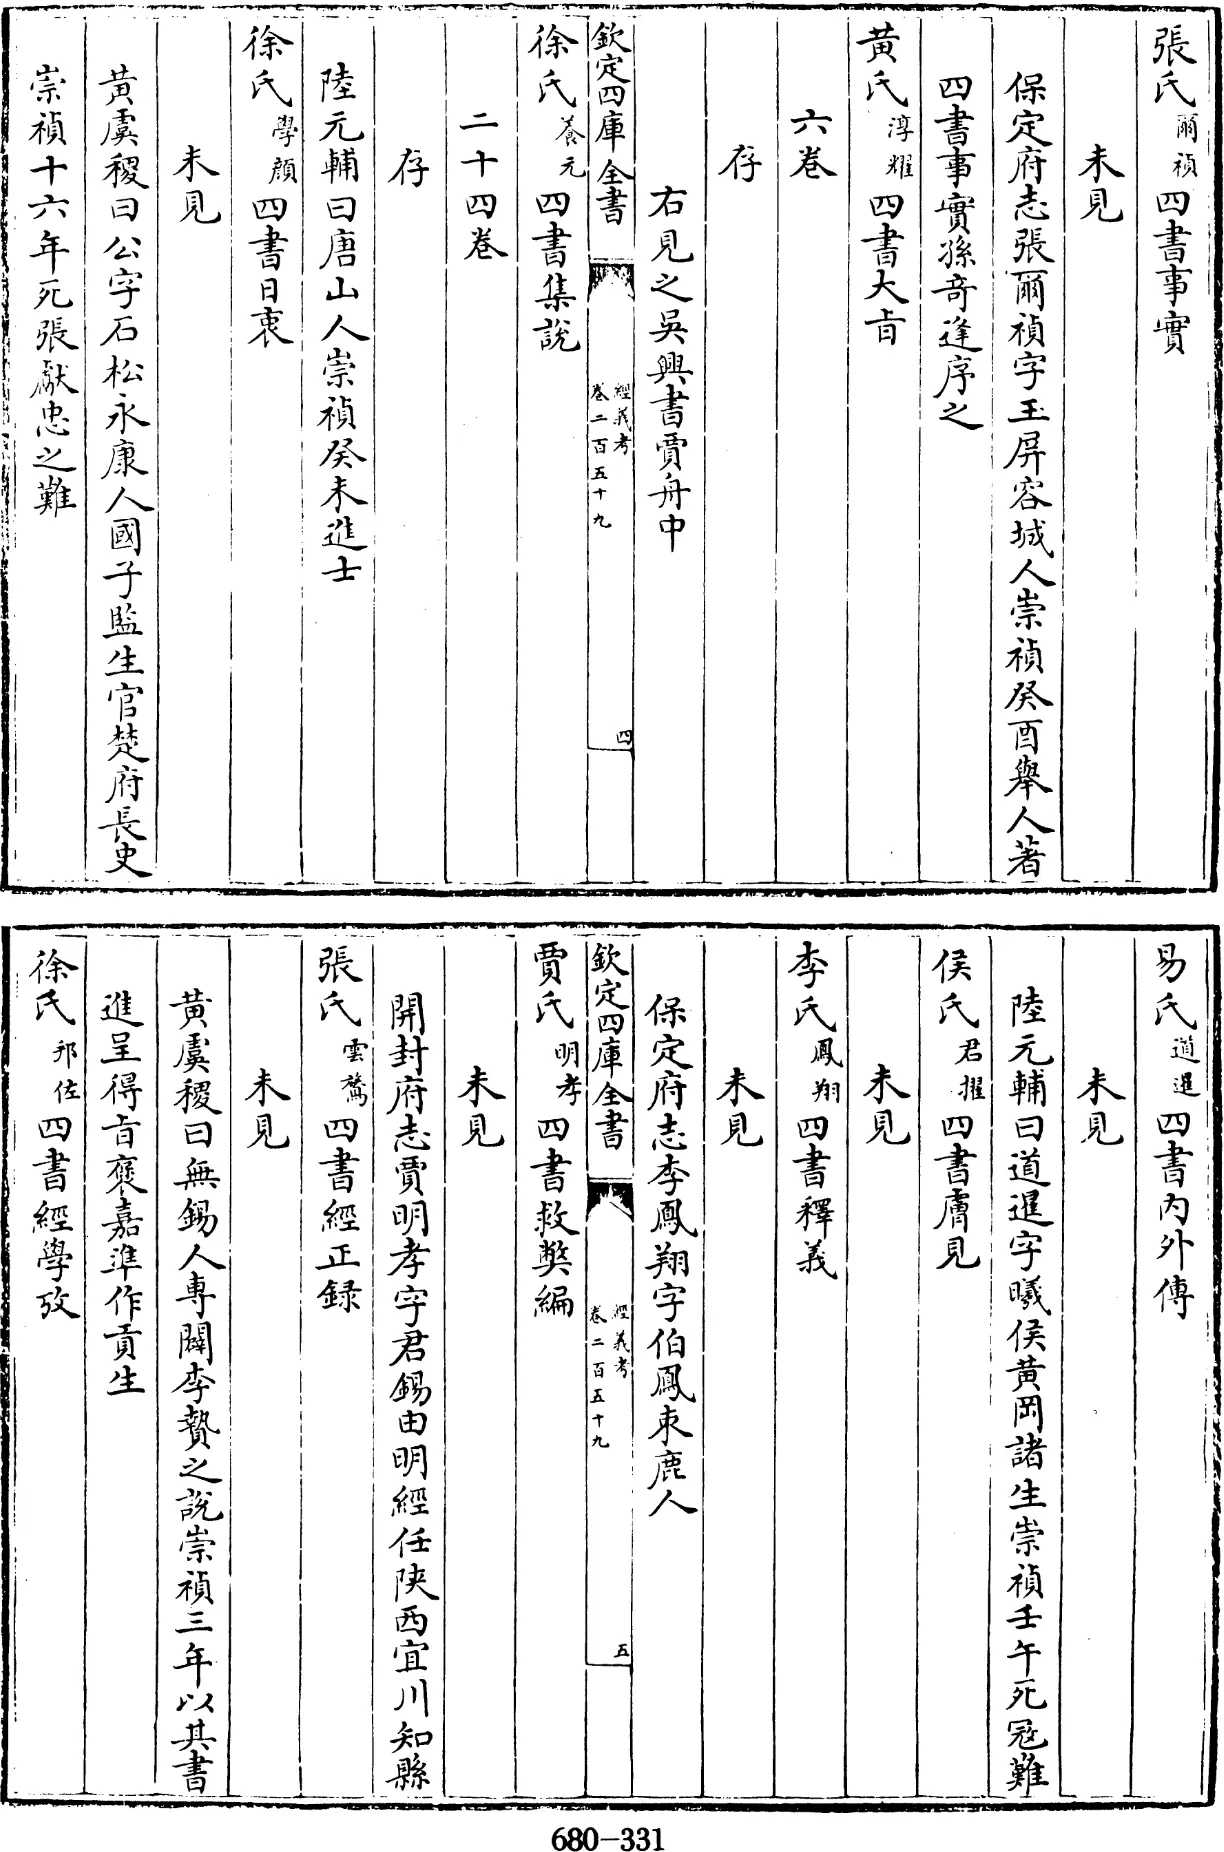 張氏爾禎四書事實
未見
保定府志張爾禎字玉屏容城人崇禎癸酉舉人著
四書事實孫竒逢序之
黄氏淳耀四書大㫖
六卷
存
右見之吳興書賈舟中
欽定四庫全書
經義考
卷二百五十九
四
徐氏養元四書集說
二十四卷
存
陸元輔曰唐山人崇禎癸未進士
徐氏學顔四書日衷
未見
黄虞稷曰公字石松永康人國子監生官楚府長史
崇禎十六年死張獻忠之難
易氏道暹四書内外傳
未見
陸元輔曰道暹字曦侯黄岡諸生崇禎壬午死冦難
侯氏君擢四書膚見
未見
李氏鳳翔四書釋義
未見
保定府志李鳳翔字伯鳳束鹿人
欽定四庫全書
經義考
卷二百五十九
五
賈氏明孝四書救獘編
未見
開封府志賈明孝字君錫由明經任陜西宜川知縣
張氏雲鶩四書經正録
未見
黄虞稷曰無錫人専闢李贄之說崇禎三年以其書
進呈得㫖褒嘉準作貢生
徐氏邦佐四書經學攷
680-331